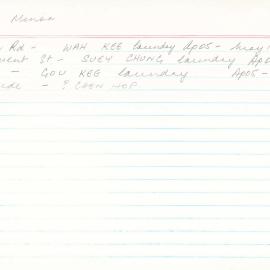 Rd - WAH KEE laundry Ap05 - May
St - SUEY CHUNG laundry Ap0
- GOU KEE laundry Ap05 -
- ? CHEN HOP